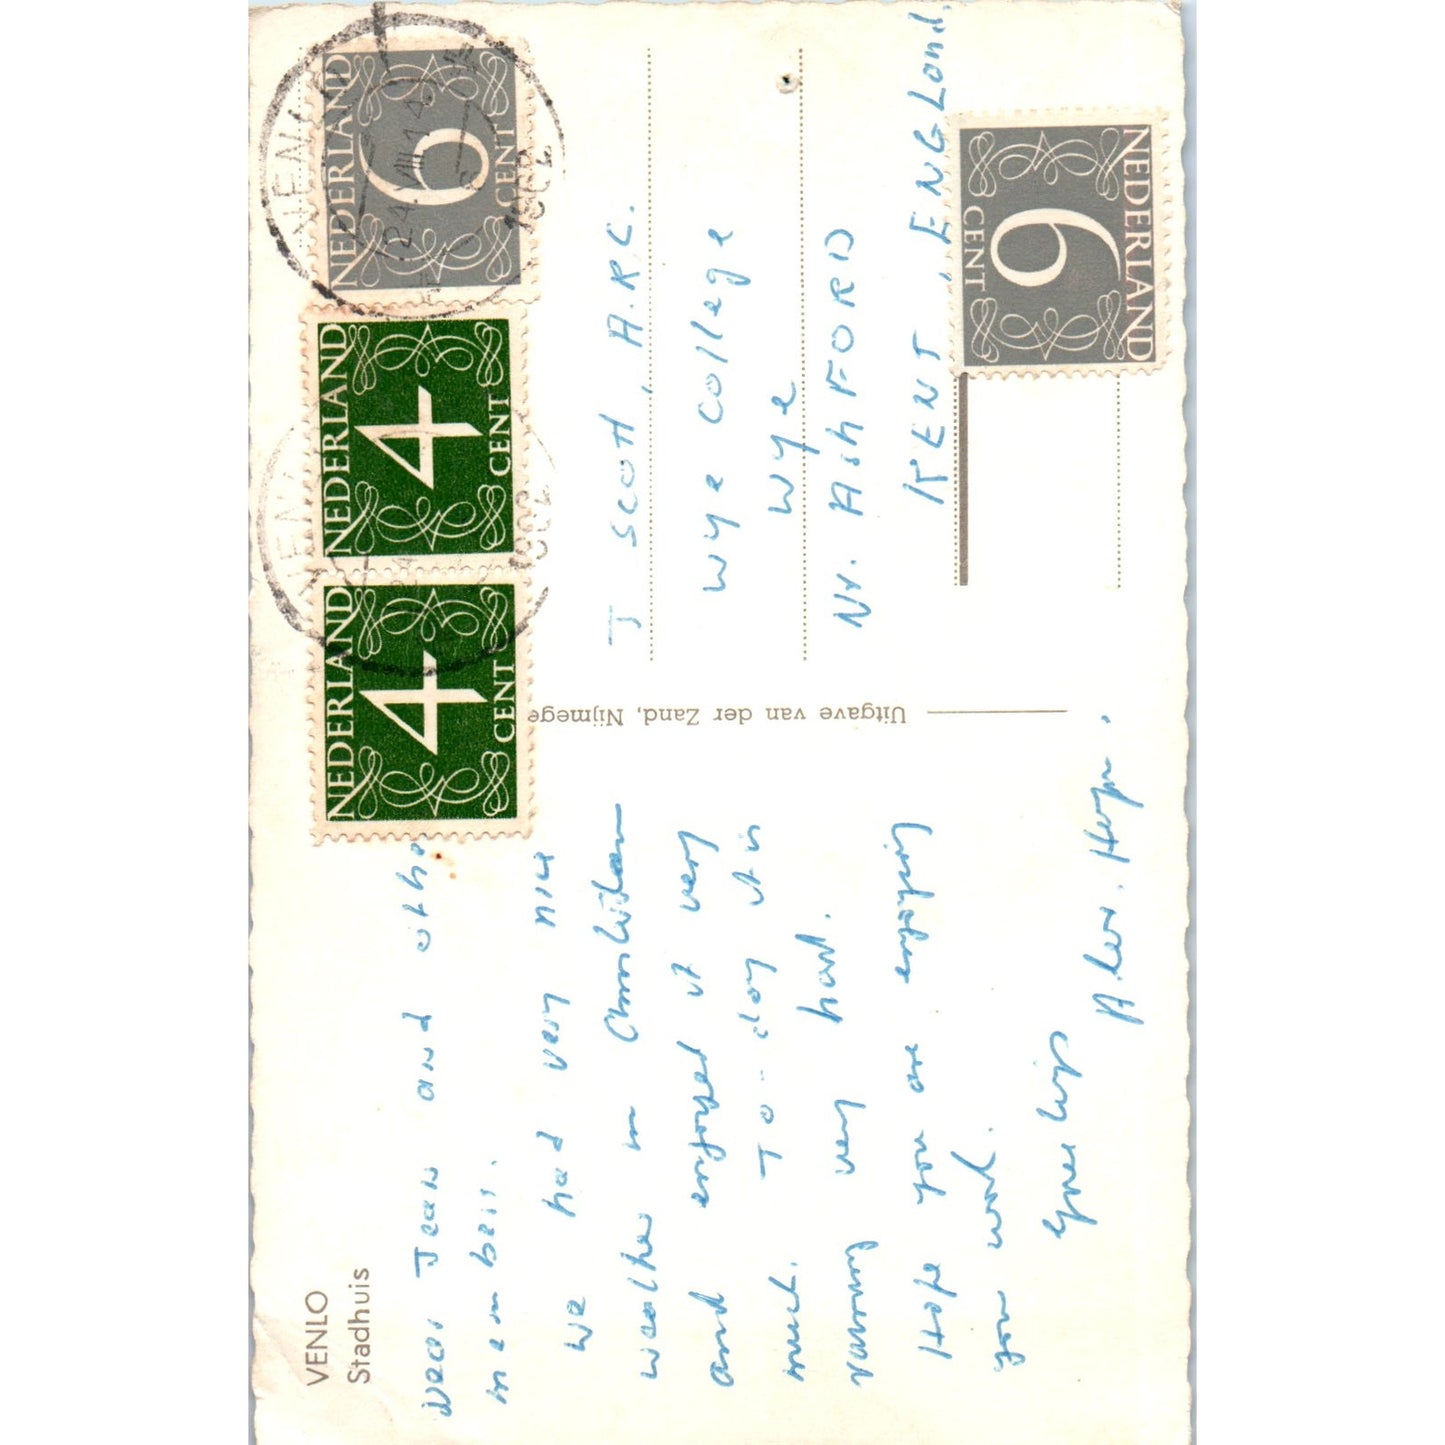 VENLO
Stadhuis
Dear Jean and othe
members.
We had very nice
weather in
and enjoyed it very
much. To-day it is
very hard.
Hope you are enjoying
your work.
Yours
Alex.
Uitgave van der Zand, Nijmege
NEDERLAND
4
CENT
NEDERLAND
4
CENT
NEDERLAND
6
CENT
VENLO
24.VIII.14
J SCOTT, A.R.C.
Wye College
Wye
Nr. AshFORD
KENT, ENGLand.
NEDERLAND
6
CENT